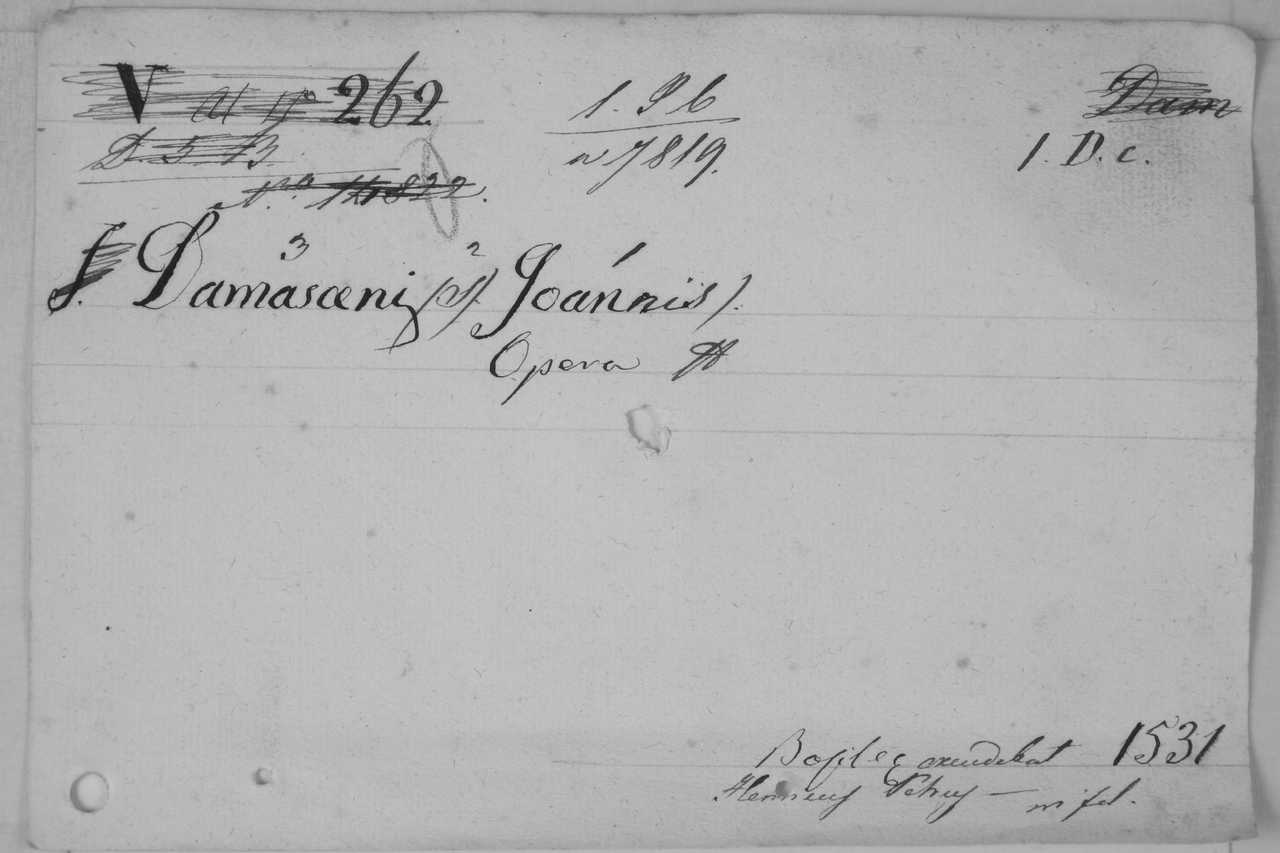 V 262
D. 5 B
1. P b
n 7819.
Dam
1. D. c.
3 2 1
S. Damasceni (S). Joannis).
Opera
Basileę excudebat 1531
Henricus Petrus — in fol.